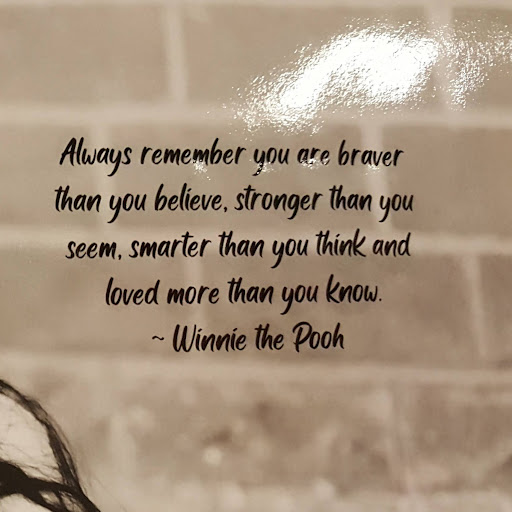 Always remember you are braver
than you believe, stronger than you
seem, smarter than you think and
loved more than you know.
~ Winnie the Pooh